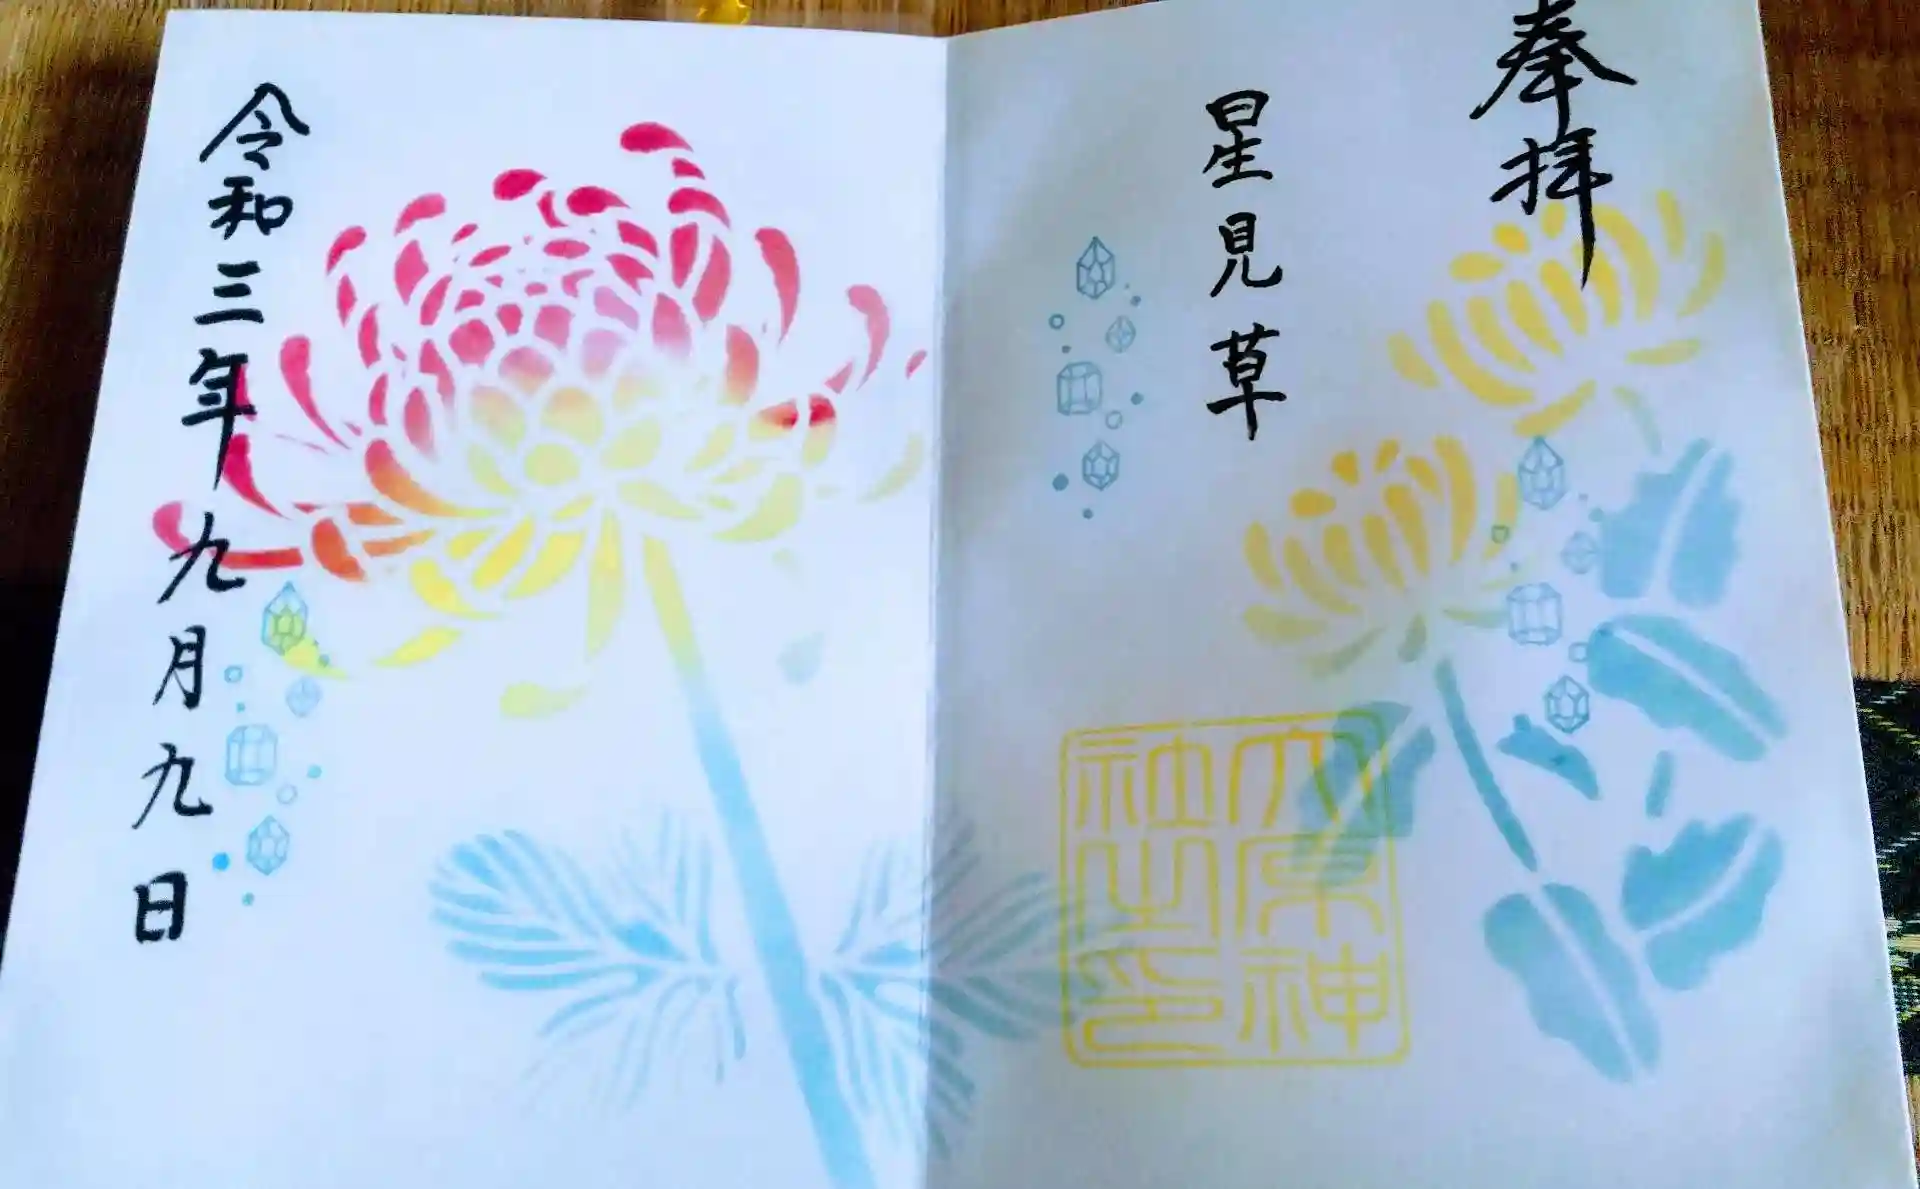 奉拝
星見草
大原神
社之印
令和三年九月九日